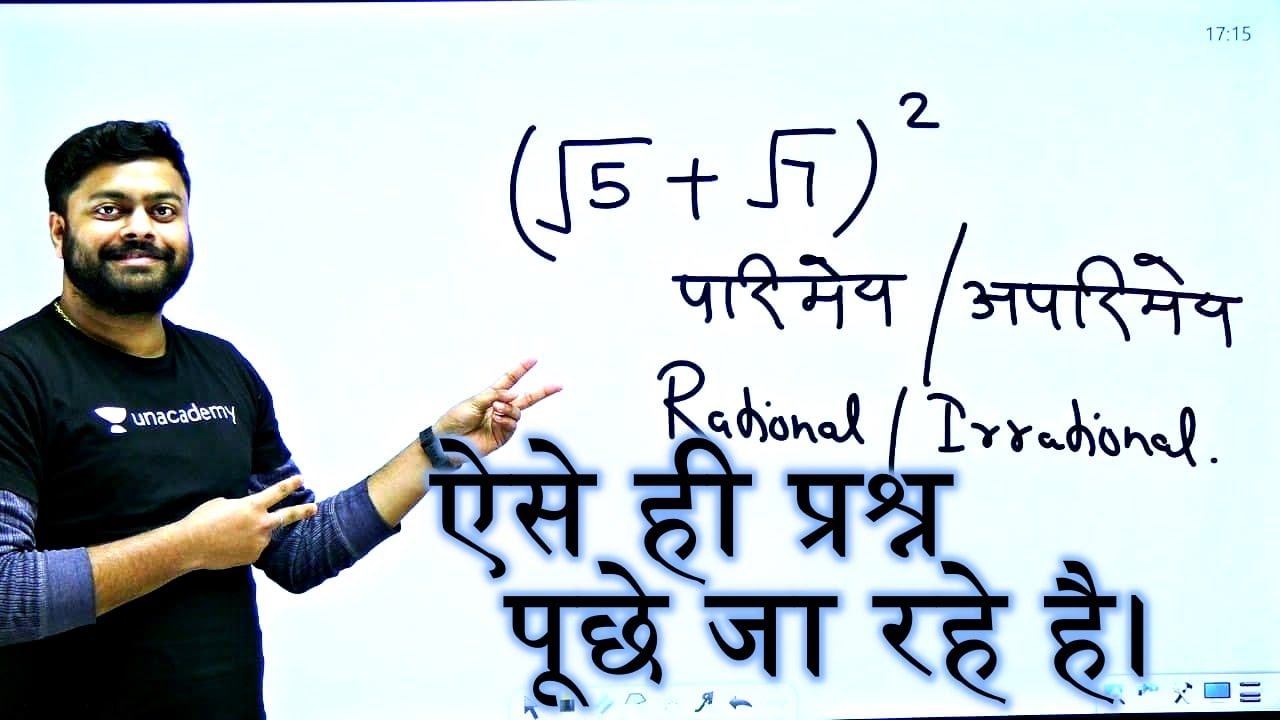 17:15
(√5 + √7)²
परिमेय / अपरिमेय
Rational / Irrational.
unacademy
ऐसे ही प्रश्न
पूछे जा रहे है।